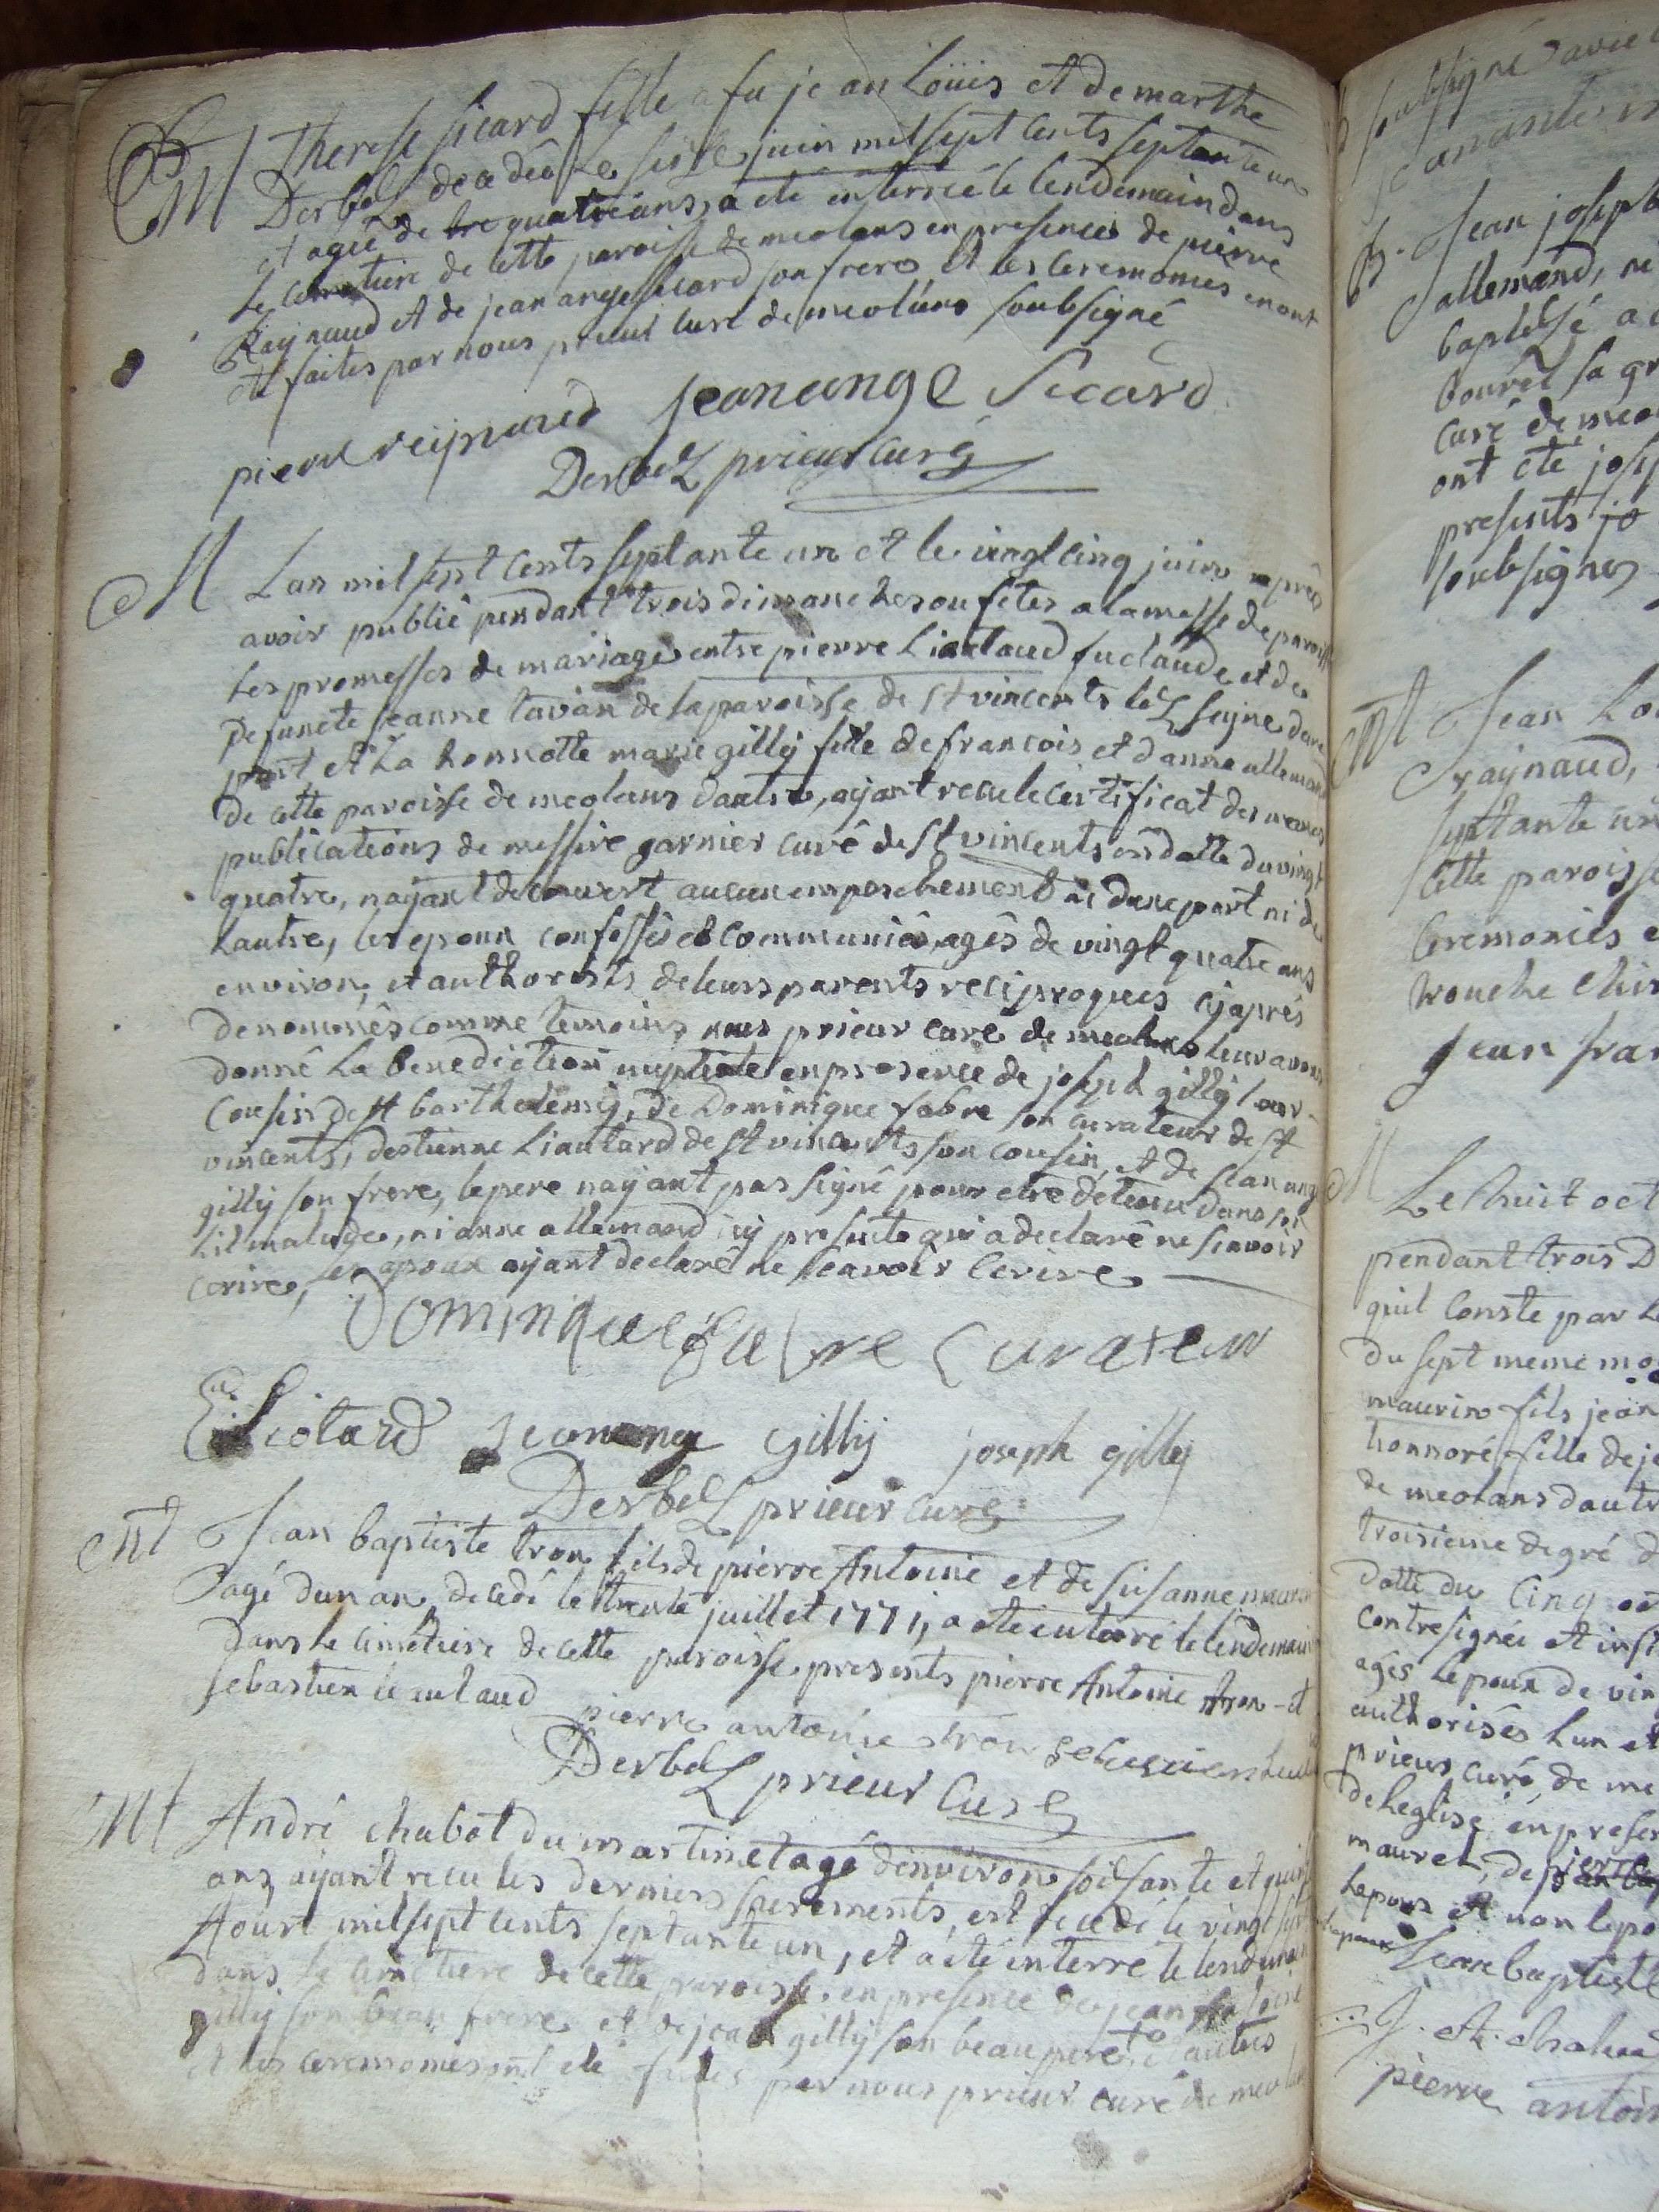 Mt Therese sicard fille a fu jean Loüis et de marthe
Derbez decedée le juin mil sept cents septante un
et agée de quatre ans, a eté enterrée le lendemain dans
le cimetiere de cette paroisse de meolans en presence de pierre
Raynaud et de jean ange sicard son frere et les ceremonies en ont
eté faites par nous prieur curé de meolans soubsigné
pierre reijnaud jean ange Sicard
Derbez prieur curé
M Lan mil sept cents septante un et le vingt cinq juin aprés
avoir publié pendant trois dimanches ou fetes a la messe de paroisse
les promesses de mariage entre pierre Liautaud fu claude et de
defuncte jeanne tavan de la paroisse de St vincents le Seyne dune
part et la honnette marie gilly fille de francois et danne allemand
de cette paroisse de meolans dautre, ayant recu le certificat des memes
publications de messire garnier curé de St vincents en datte du vingt
quatre, nayant decouvert aucun empeschement ni dune part ni de
lautre, les epoux confessés et communiés, agés de vingt quatre ans
environ, et authorisés de leurs parents reciproques cy aprés
denommés comme temoins nous prieur curé de meolans leur avons
donné la benediction nuptiale en presence de joseph gilly leur
cousin de St barthelemy, de Dominique fabre son curateur de St
vincents, destienne Liautard de St vincents son cousin, et de jean ange
gilly son frere, le pere nayant pas signé pour etre detenu dans son
lit malade, ni anne allemand icy presente qui a declaré ne scavoir
ecrire, les epoux ayant declaré ne scavoir ecrire
Dominique fabre Curateur
E Liotard jean ange gilly joseph gilly
Derbez prieur curé
Mt Jean baptiste tron fils de pierre Antoine et de Susanne maurin
agé dun an, decedé le trente juillet 1771, a eté enterré le lendemain
dans le cimetiere de cette paroisse presents pierre Antoine tron et
sebastien leautaud
pierre antoine tron sebastien
Derbez prieur Curé
Mt André chabot du martinet agé denviron soisante et quinze
ans, ayant recu les derniers sacrements, est decedé le vingt sept
Aoust mil sept cents septante un, et a eté enterré le lendemain
dans le cimetiere de cette paroisse, en presence de jean
gilly son beau frere et de jean gilly son beau pere et autres
et les ceremonies ont eté faites par nous prieur curé de meolans
soubsigné avec
B. Jean joseph
allemand, ne
baptisé a
sa gr
curé de meo
ont eté jose
presents
soubsignes
Mt Jean Lo
raynaud,
septante un
cette paroisse
Ceremonies e
trouche
jean fran
M Le huit oct
pendant trois D
quil conste par l
du sept meme mo
maurin fils jean
honnoré fille de je
de meolans dautr
troisieme degré d
datté du Cinq oc
contresignée et ins
agés lepoux de vin
authorisés lun et
prieur curé de me
de leglise en presen
maurel, de
lepoux et non lepo
Jean baptiste
pierre antoin